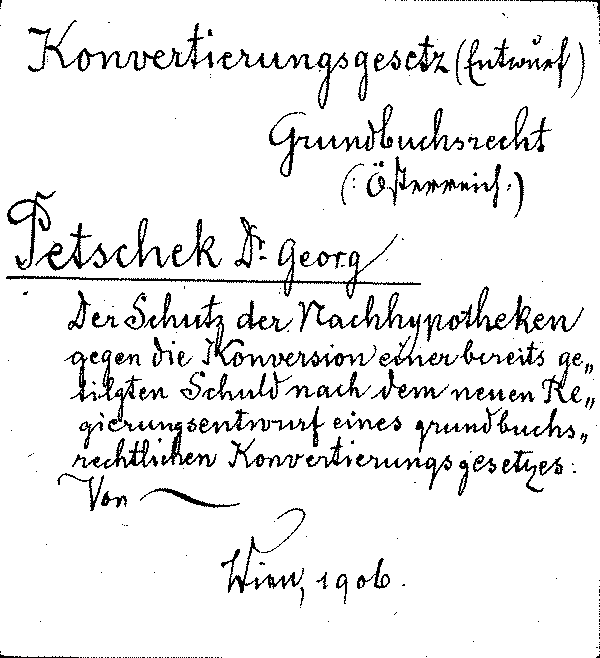 Konvertierungsgesetz (Entwurf)
Grundbuchsrecht
(: Österreich :)
Petschek Dr. Georg
Der Schutz der Nachhypotheken
gegen die Konversion einer bereits ge„
tilgten Schuld nach dem neuen Re„
gierungsentwurf eines grundbuchs„
rechtlichen Konvertierungsgesetzes.
Von
Wien, 1906.